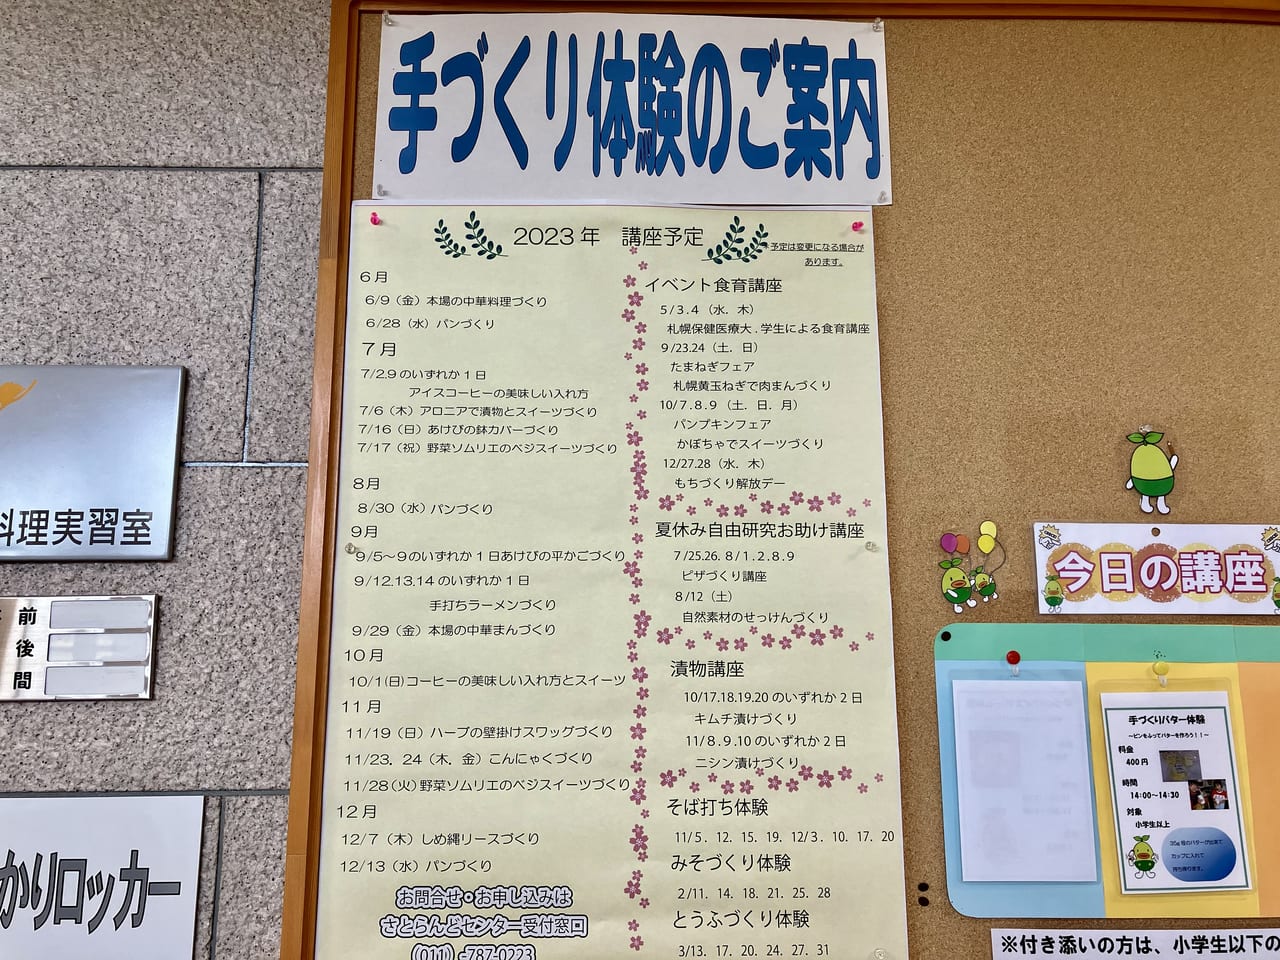 手づくり体験のご案内
2023年 講座予定
予定は変更になる場合が
あります。
6月
6/9（金）本場の中華料理づくり
6/28（水）パンづくり
7月
7/2.9のいずれか1日
アイスコーヒーの美味しい入れ方
7/6（木）アロニアで漬物とスイーツづくり
7/16（日）あけびの鉢カバーづくり
7/17（祝）野菜ソムリエのベジスイーツづくり
8月
8/30（水）パンづくり
9月
9/5～9のいずれか1日あけびの平かごづくり
9/12.13.14のいずれか1日
手打ちラーメンづくり
9/29（金）本場の中華まんづくり
10月
10/1(日)コーヒーの美味しい入れ方とスイーツ
11月
11/19（日）ハーブの壁掛けスワッグづくり
11/23．24（木．金）こんにゃくづくり
11/28(火)野菜ソムリエのベジスイーツづくり
12月
12/7（木）しめ縄リースづくり
12/13（水）パンづくり
お問合せ・お申し込みは
さとらんどセンター受付窓口
(011)-787-0223
イベント食育講座
5/3.4（水．木）
札幌保健医療大．学生による食育講座
9/23.24（土．日）
たまねぎフェア
札幌黄玉ねぎで肉まんづくり
10/7.8.9（土．日．月）
パンプキンフェア
かぼちゃでスイーツづくり
12/27.28（水．木）
もちづくり解放デー
夏休み自由研究お助け講座
7/25.26. 8/1.2.8.9
ピザづくり講座
8/12（土）
自然素材のせっけんづくり
漬物講座
10/17.18.19.20のいずれか2日
キムチ漬けづくり
11/8.9.10のいずれか2日
ニシン漬けづくり
そば打ち体験
11/5. 12. 15. 19. 12/3. 10. 17. 20
みそづくり体験
2/11. 14. 18. 21. 25. 28
とうふづくり体験
3/13. 17. 20. 24. 27. 31
料理実習室
前
後
間
かりロッカー
今日の講座
手づくりバター体験
～ビンをふってバターを作ろう！！～
料金
400円
時間
14:00～14:30
対象
小学生以上
35g程のバターが出来て
カップに入れて
持ち帰ります。
※付き添いの方は、小学生以下の